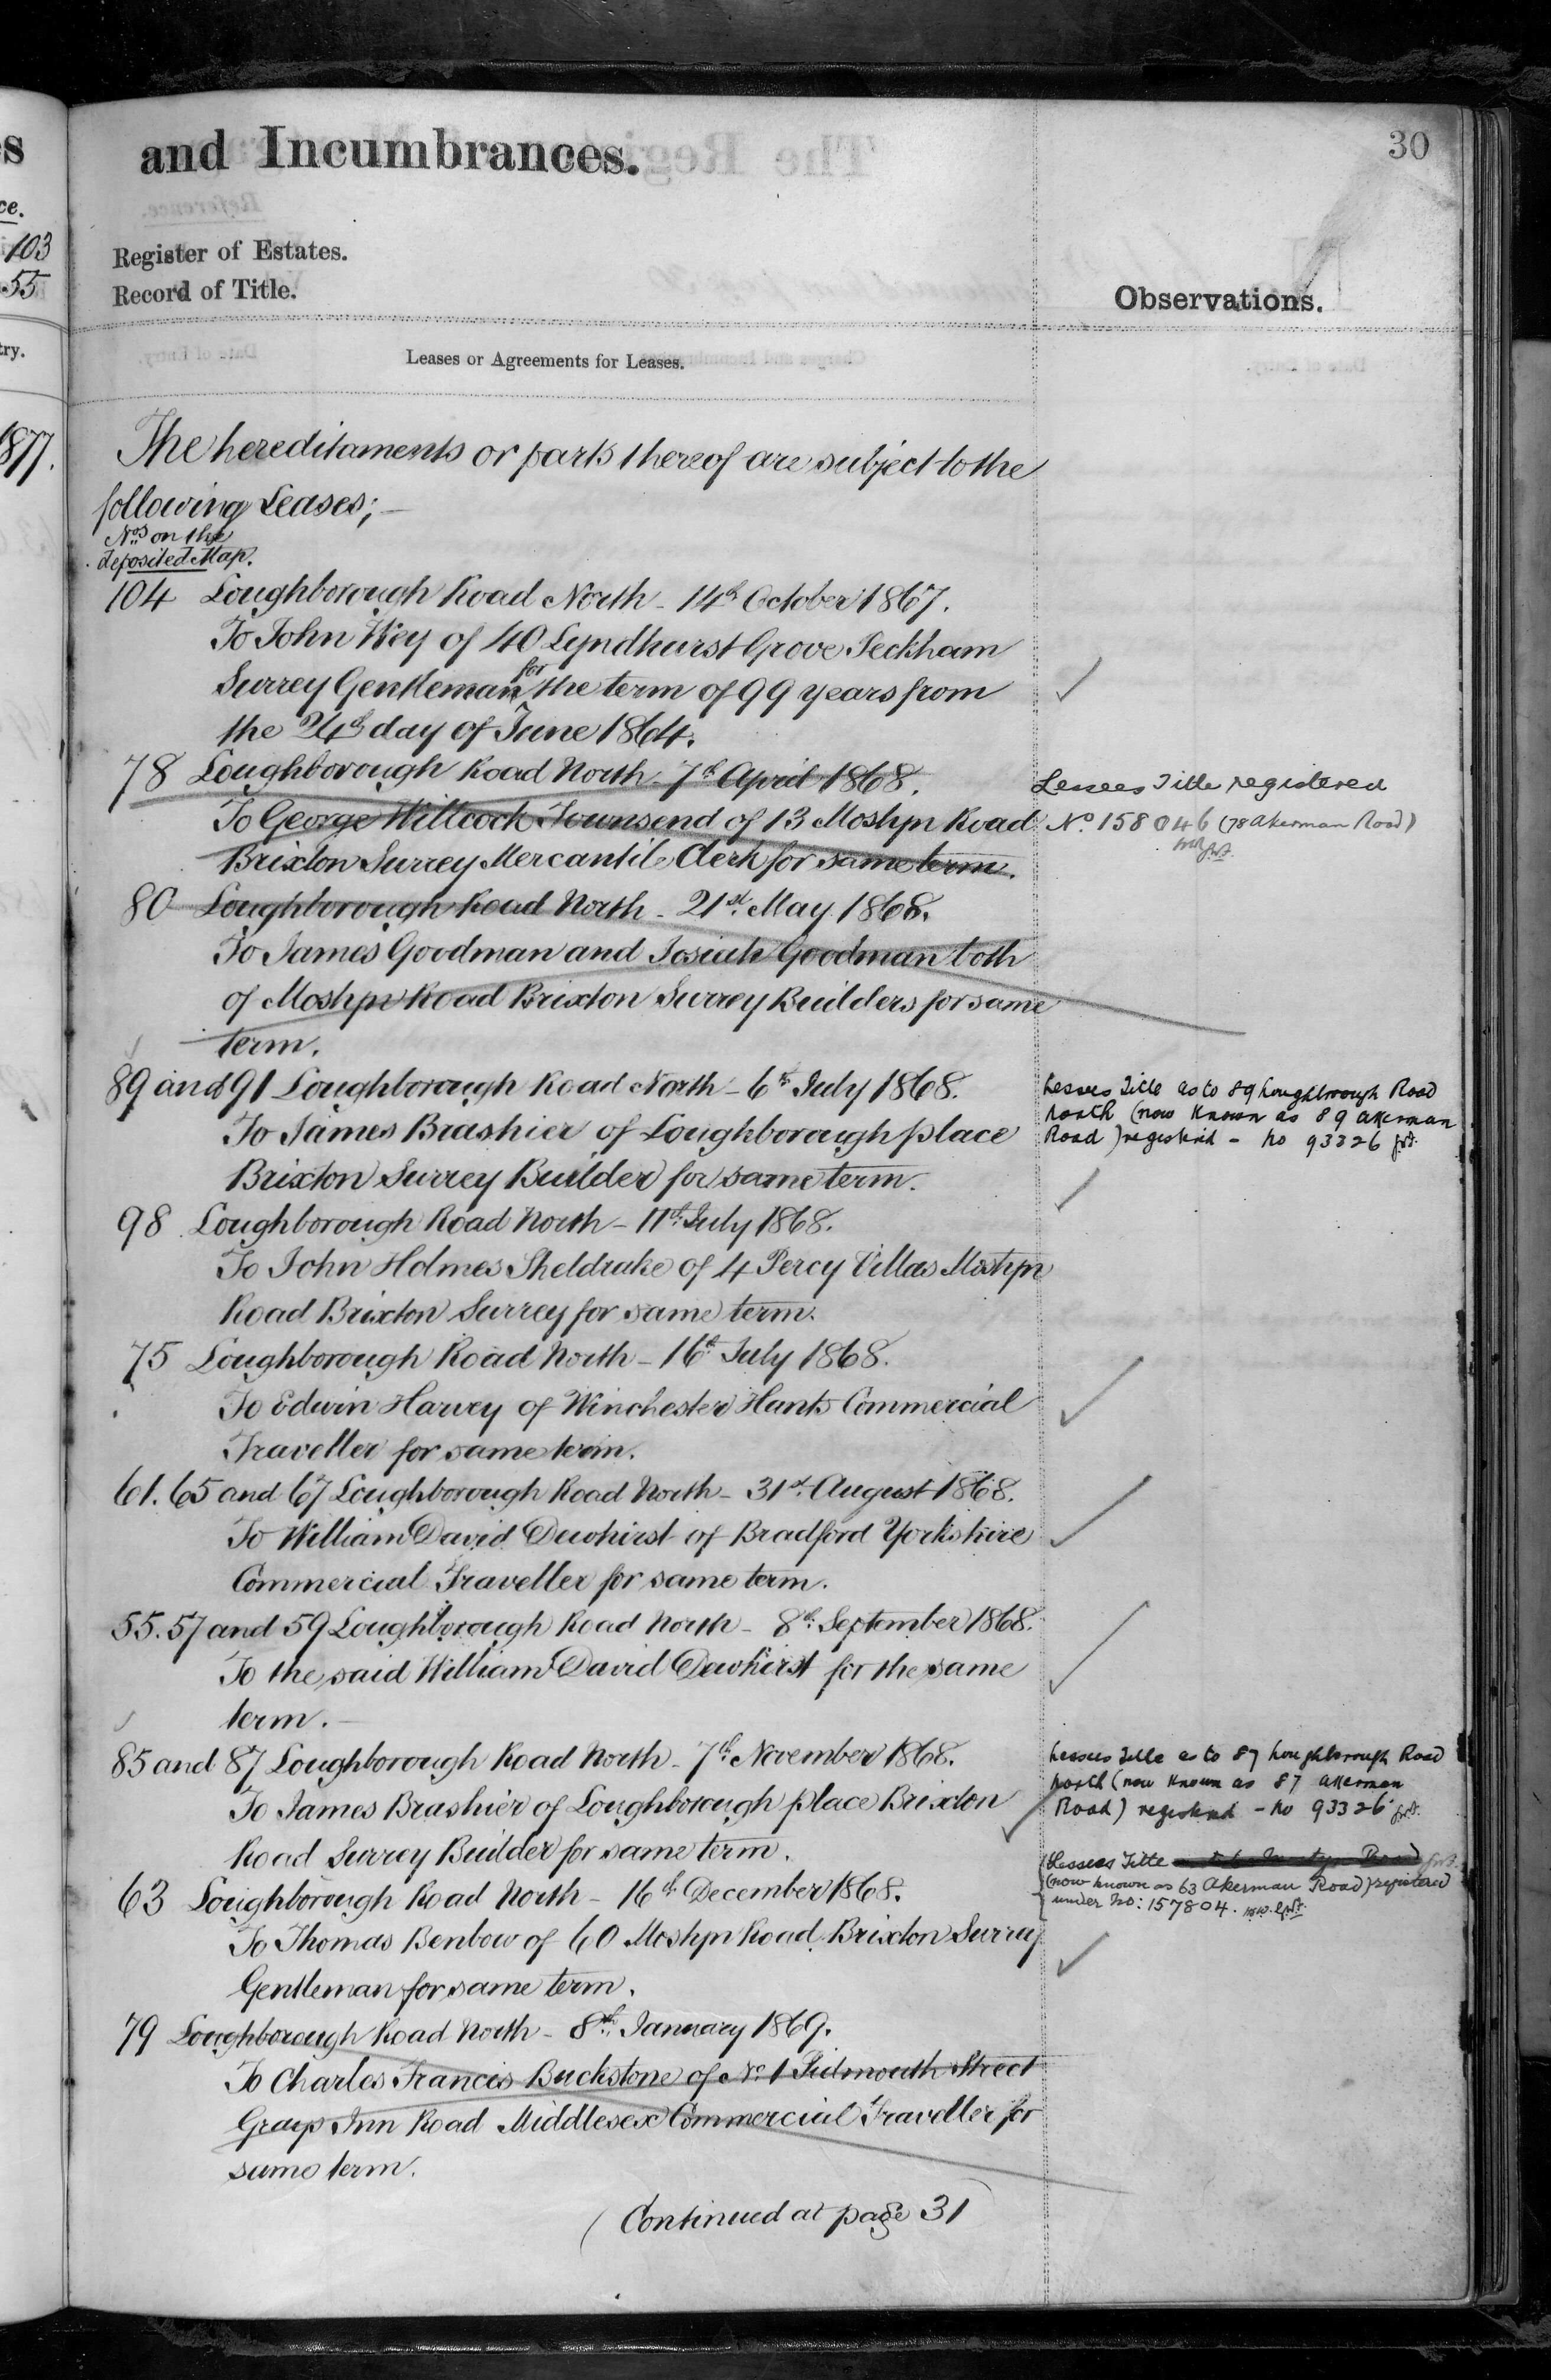 and Incumbrances.
30
Register of Estates.
Record of Title.
Observations.
Leases or Agreements for Leases.
The hereditaments or parts thereof are subject to the
following Leases;—
Nos on the
deposited Map.
104 Loughborough Road North - 14th October 1867.
To John Wey of 40 Lyndhurst Grove Peckham
Surrey Gentleman for the term of 99 years from
the 24th day of June 1864.
78 Loughborough Road North - 7th April 1868.
To George Willcock Townsend of 13 Mostyn Road
Brixton Surrey Mercantile Clerk for same term.
Lessees Title registered
No. 158046 (78 Akerman Road)
80 Loughborough Road North - 21st May 1868.
To James Goodman and Josiah Goodman both
of Mostyn Road Brixton Surrey Builders for same
term.
89 and 91 Loughborough Road North - 6th July 1868.
To James Brashier of Loughborough place
Brixton Surrey Builder for same term.
Lessees Title as to 89 Loughborough Road
North (now known as 89 Akerman
Road) registered - No 93326
98 Loughborough Road North - 11th July 1868.
To John Holmes Sheldrake of 4 Percy Villas Mostyn
Road Brixton Surrey for same term.
75 Loughborough Road North - 16th July 1868.
To Edwin Harvey of Winchester Hants Commercial
Traveller for same term.
61. 65 and 67 Loughborough Road North - 31st August 1868.
To William David Dewhirst of Bradford Yorkshire
Commercial Traveller for same term.
55. 57 and 59 Loughborough Road North - 8th September 1868.
To the said William David Dewhirst for the same
term.—
85 and 87 Loughborough Road North - 7th November 1868.
To James Brashier of Loughborough place Brixton
Road Surrey Builder for same term.
Lessees Title as to 87 Loughborough Road
North (now known as 87 Akerman
Road) registered - No 93326
63 Loughborough Road North - 16th December 1868.
To Thomas Benbow of 60 Mostyn Road Brixton Surrey
Gentleman for same term.
Lessees Title
(now known as 63 Akerman Road) registered
under No: 157804.
79 Loughborough Road North - 8th January 1869.
To Charles Francis Buckstone of No. 1 Sidmouth Street
Grays Inn Road Middlesex Commercial Traveller for
same term.
(Continued at page 31)
103
55
try.
1877.